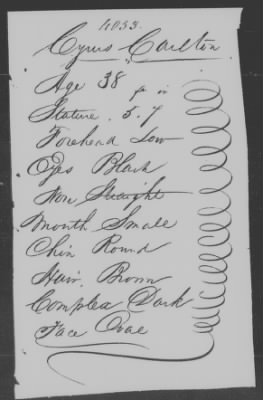 4033.
Cyrus Carlton
Age 38 ft in
Stature 5-7
Forehead Low
Eyes Black
Nose Straight
Mouth Small
Chin Round
Hair Brown
Complex Dark
Face Oval